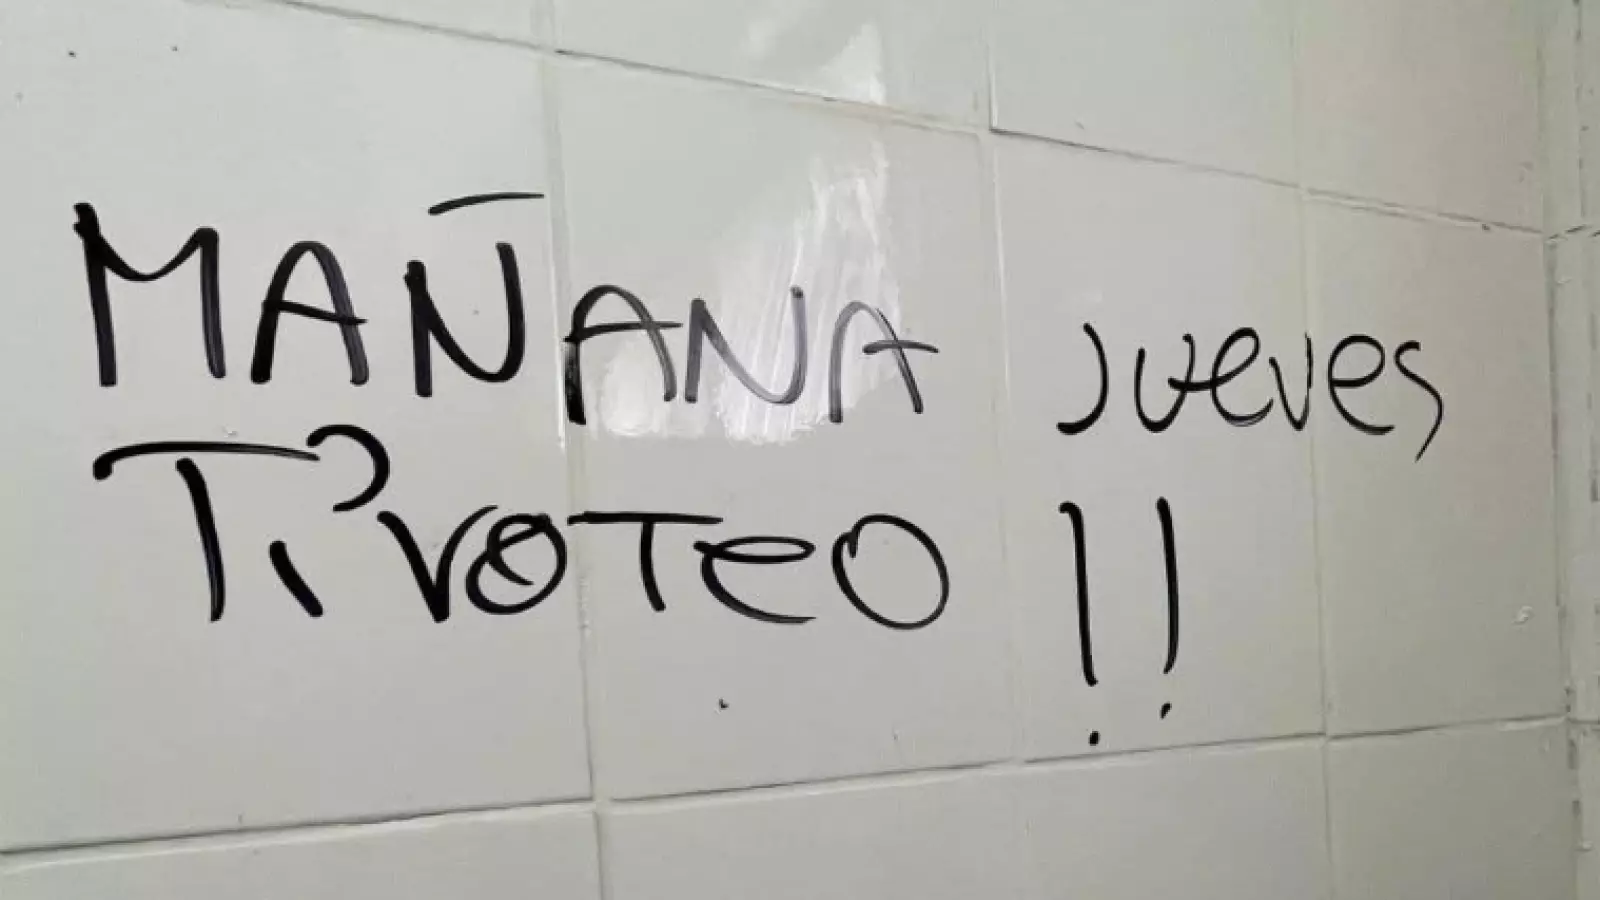 MAÑANA Jueves
Ti'voTeo !!